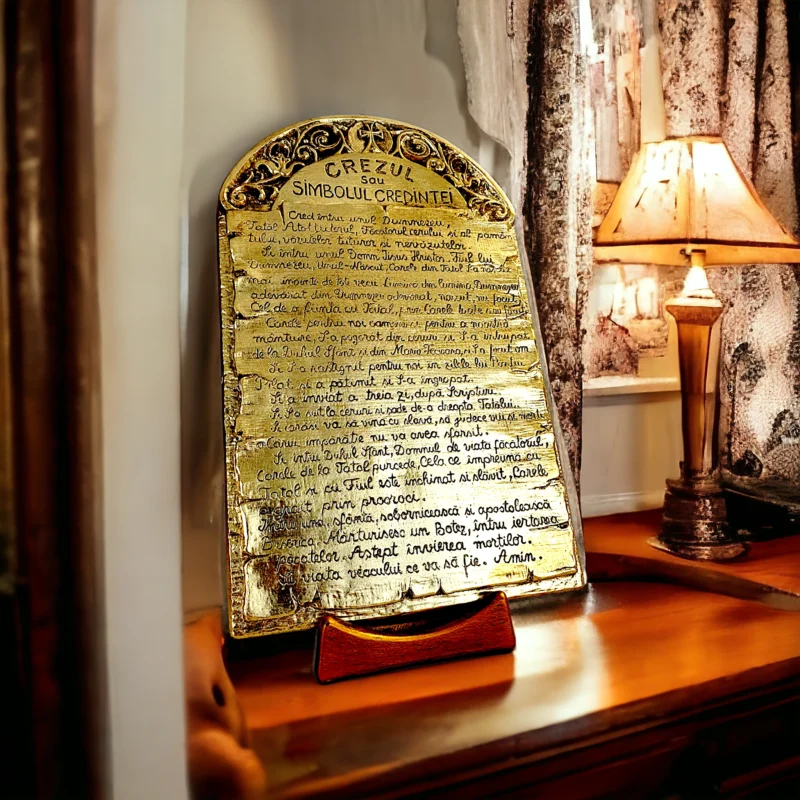 CREZUL
sau
SIMBOLUL CREDINTEI
Cred întru unul Dumnezeu,
Tatăl Atotțiitorul, Făcătorul cerului și al pămân
tului, văzutelor tuturor și nevăzutelor.
Și întru unul Domn Iisus Hristos, Fiul lui
Dumnezeu, Unul-Născut, Carele din Tatăl S-a născut
mai înainte de toți vecii. Lumină din lumină, Dumnezeu
adevărat din Dumnezeu adevărat, născut, nu făcut,
Cel de o ființă cu Tatăl, prin Carele toate
Carele pentru noi oamenii și pentru a noastră
mântuire, S-a pogorât din ceruri și S-a întrupat
de la Duhul Sfânt și din Maria Fecioara, și S-a făcut om
Și S-a răstignit pentru noi în zilele lui Ponțiu
Pilat și a pătimit și S-a îngropat.
Și a înviat a treia zi, după Scripturi.
Și S-a suit la ceruri și sade de-a dreapta Tatălui.
Și iarăși va să vină cu slavă, să judece vii și morții
a Cărui împărăție nu va avea sfârsit.
Și întru Duhul Sfânt, Domnul de viață făcătorul,
Carele de la Tatăl purcede, Cela ce împreună cu
Tatăl și cu Fiul este închinat și slăvit, Carele
a grăit prin prooroci.
Întru una, sfântă, sobornicească și apostolească
Biserică. Mărturisesc un Botez, întru iertarea
păcatelor. Aștept învierea morților.
Și viața veacului ce va să fie. Amin.